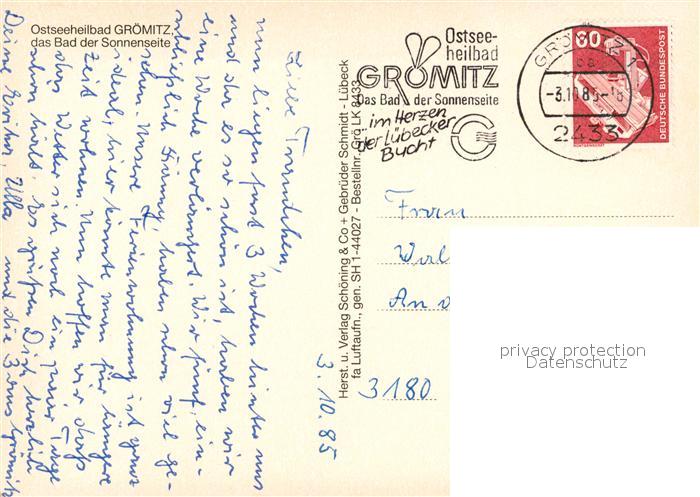 Ostseeheilbad GRÖMITZ,
das Bad der Sonnenseite
3.10.85
Liebe
nun liegen fast 3 Wochen hinter uns
und da es so schön ist, haben wir
eine Woche verlängert. Wir fünf, ein-
schließlich haben schon viel ge-
sehen. Unsere Ferienwohnung ist ganz
ideal, hier könnte man für längere
Zeit wohnen. Nun hoffen wir, daß
das Wetter sich noch ein paar Tage
schön hält. Es grüßen Dich herzlich
Deine Ulla und die 3 aus Grömitz
Herst. u. Verlag Schöning & Co + Gebrüder Schmidt - Lübeck
fa Luftaufn., gen. SH 1-44027 - Bestellnr. Grö LK 8433
Ostsee-
heilbad
GRÖMITZ
Das Bad der Sonnenseite
im Herzen
der Lübecker
Bucht
GRÖMITZ
-3.10.85-18
2433
60
DEUTSCHE BUNDESPOST
Frau
Wal
An d
3180
privacy protection
Datenschutz